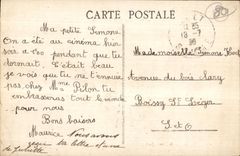 CARTE POSTALE
80
Ma petite Simone
On a été au cinéma hier
soir à pendant que tu
dormait. C'était beau
je vois que tu ne t'ennuie
pas chez Mme Pilon tu
embrasseras tout le monde
pour nous
Bons baisers
Maurice Nous avons
la lettre
de Juliette
Mademoiselle Simone
Avenue du bois
Boissy St Léger
S. et O